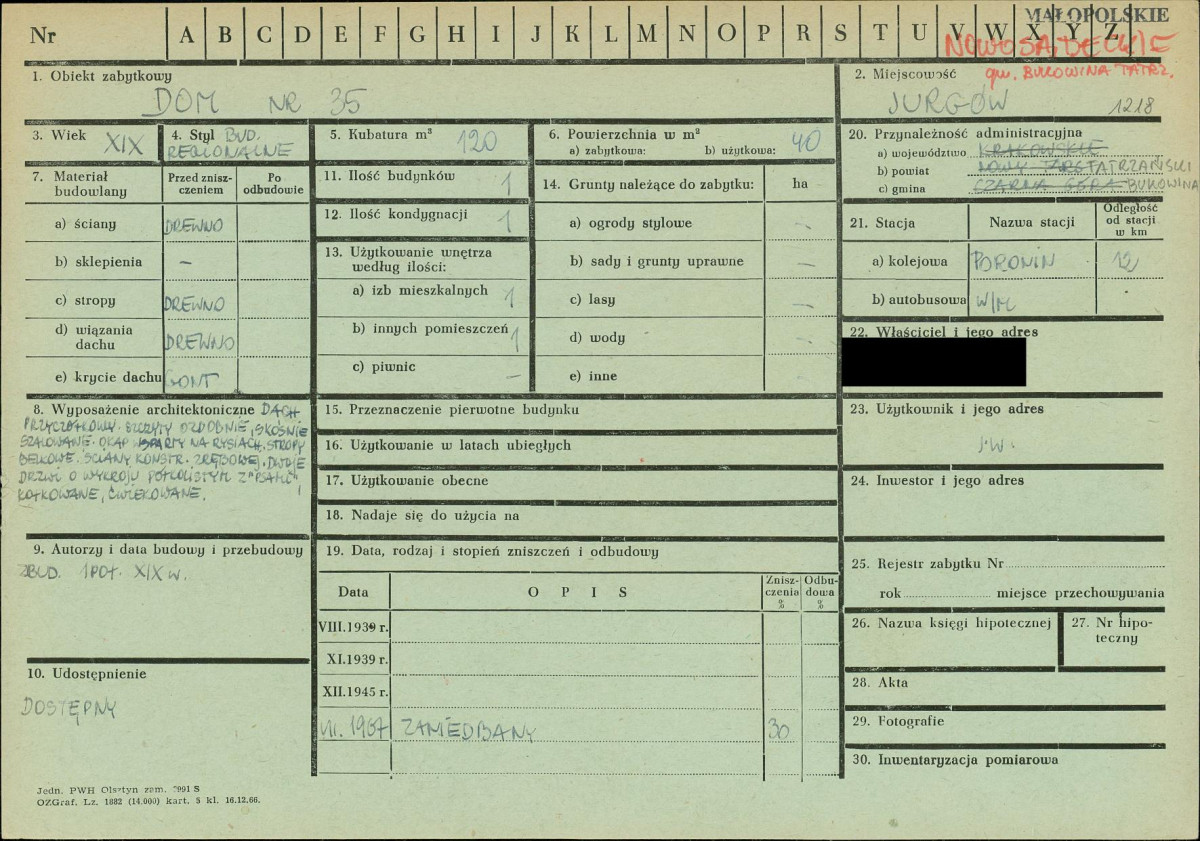 MAŁOPOLSKIE
Nr A B C D E F G H I J K L M N O P R S T U V W X Y Z
NOWOSĄDECKIE
gm. BUKOWINA TATRZ.
1. Obiekt zabytkowy
DOM NR 35
2. Miejscowość
JURGÓW 1218
3. Wiek XIX
4. Styl BUD.
REGIONALNE
5. Kubatura m³ 120
6. Powierzchnia w m² 40
a) zabytkowa: b) użytkowa:
20. Przynależność administracyjna
a) województwo KRAKOWSKIE
b) powiat NOWY TARG TATRZAŃSKI
c) gmina CZARNA GÓRA BUKOWINA
7. Materiał budowlany
Przed zniszczeniem
Po odbudowie
a) ściany DREWNO
b) sklepienia –
c) stropy DREWNO
d) wiązania dachu DREWNO
e) krycie dachu GONT
11. Ilość budynków 1
12. Ilość kondygnacji 1
13. Użytkowanie wnętrza
według ilości:
a) izb mieszkalnych 1
b) innych pomieszczeń 1
c) piwnic –
14. Grunty należące do zabytku: ha
a) ogrody stylowe –
b) sady i grunty uprawne –
c) lasy –
d) wody –
e) inne -
21. Stacja Nazwa stacji Odległość od stacji w km
a) kolejowa PORONIN 12
b) autobusowa W/M
22. Właściciel i jego adres
23. Użytkownik i jego adres
J.W.
24. Inwestor i jego adres
8. Wyposażenie architektoniczne DACH
PRZYCZÓŁKOWY. SZCZYTY OZDOBNIE, SKOŚNIE
SZALOWANE. OKAP WSPARTY NA RYSIACH, STROPY
BELKOWE. ŚCIANY KONSTR. ZRĘBOWEJ. DWOJE
DRZWI O WYKROJU PÓŁKOLISTYM Z "PSAMI"
KOŁKOWANE, ĆWIEKOWANE.
15. Przeznaczenie pierwotne budynku
16. Użytkowanie w latach ubiegłych
17. Użytkowanie obecne
18. Nadaje się do użycia na
9. Autorzy i data budowy i przebudowy
ZBUD. 1 POŁ. XIX w.
19. Data, rodzaj i stopień zniszczeń i odbudowy
Data OPIS Zniszczenia % Odbudowa %
VIII.1939 r.
XI.1939 r.
XII.1945 r.
VII. 1967 ZANIEDBANY 30
25. Rejestr zabytku Nr
rok miejsce przechowywania
26. Nazwa księgi hipotecznej
27. Nr hipoteczny
28. Akta
29. Fotografie
30. Inwentaryzacja pomiarowa
10. Udostępnienie
DOSTĘPNY
Jedn. PWH Olsztyn zam. 7991 S
OZGraf. Lz. 1882 (14.000) kart. 5 kl. 16.12.66.